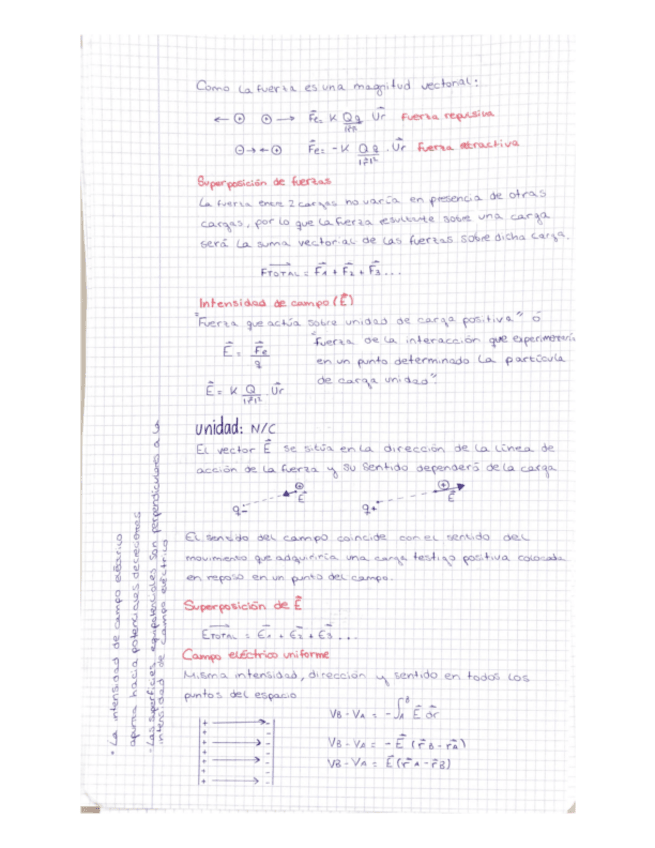 Como la fuerza es una magnitud vectorial:
← ⊕ ⊕ → F⃗e = K Qq/|r⃗|² · U⃗r Fuerza repulsiva
⊖→ ←⊕ F⃗e = -K Qq/|r⃗|² · U⃗r Fuerza atractiva
Superposición de fuerzas
La fuerza entre 2 cargas no varía en presencia de otras
cargas, por lo que la fuerza resultante sobre una carga
será la suma vectorial de las fuerzas sobre dicha carga.
F⃗TOTAL = F⃗1 + F⃗2 + F⃗3 ...
Intensidad de campo (E⃗)
"Fuerza que actúa sobre unidad de carga positiva" ó
"fuerza de la interacción que experimentaría
E⃗ = F⃗e/q
en un punto determinado la partícula
de carga unidad".
E⃗ = K Q/|r⃗|² · U⃗r
unidad: N/C
El vector E⃗ se sitúa en la dirección de la línea de
acción de la fuerza y su sentido dependerá de la carga
q- ⊕ E⃗ q+ ⊕ E⃗
El sentido del campo coincide con el sentido del
movimiento que adquiriría una carga testigo positiva colocada
en reposo en un punto del campo.
Superposición de E⃗
E⃗TOTAL = E⃗1 + E⃗2 + E⃗3 ...
Campo eléctrico uniforme
Misma intensidad, dirección y sentido en todos los
puntos del espacio
VB - VA = -∫AB E⃗ dr⃗
VB - VA = -E⃗ (r⃗B - r⃗A)
VB - VA = E⃗ (r⃗A - r⃗B)
* La intensidad de campo eléctrico
apunta hacia potenciales decrecientes
- Las superficies equipotenciales son perpendiculares a la
intensidad de campo eléctrico